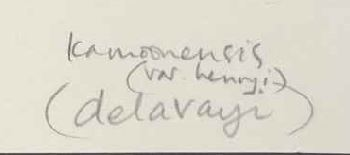 kamoonensis
(var. henryi)
(delavayi)